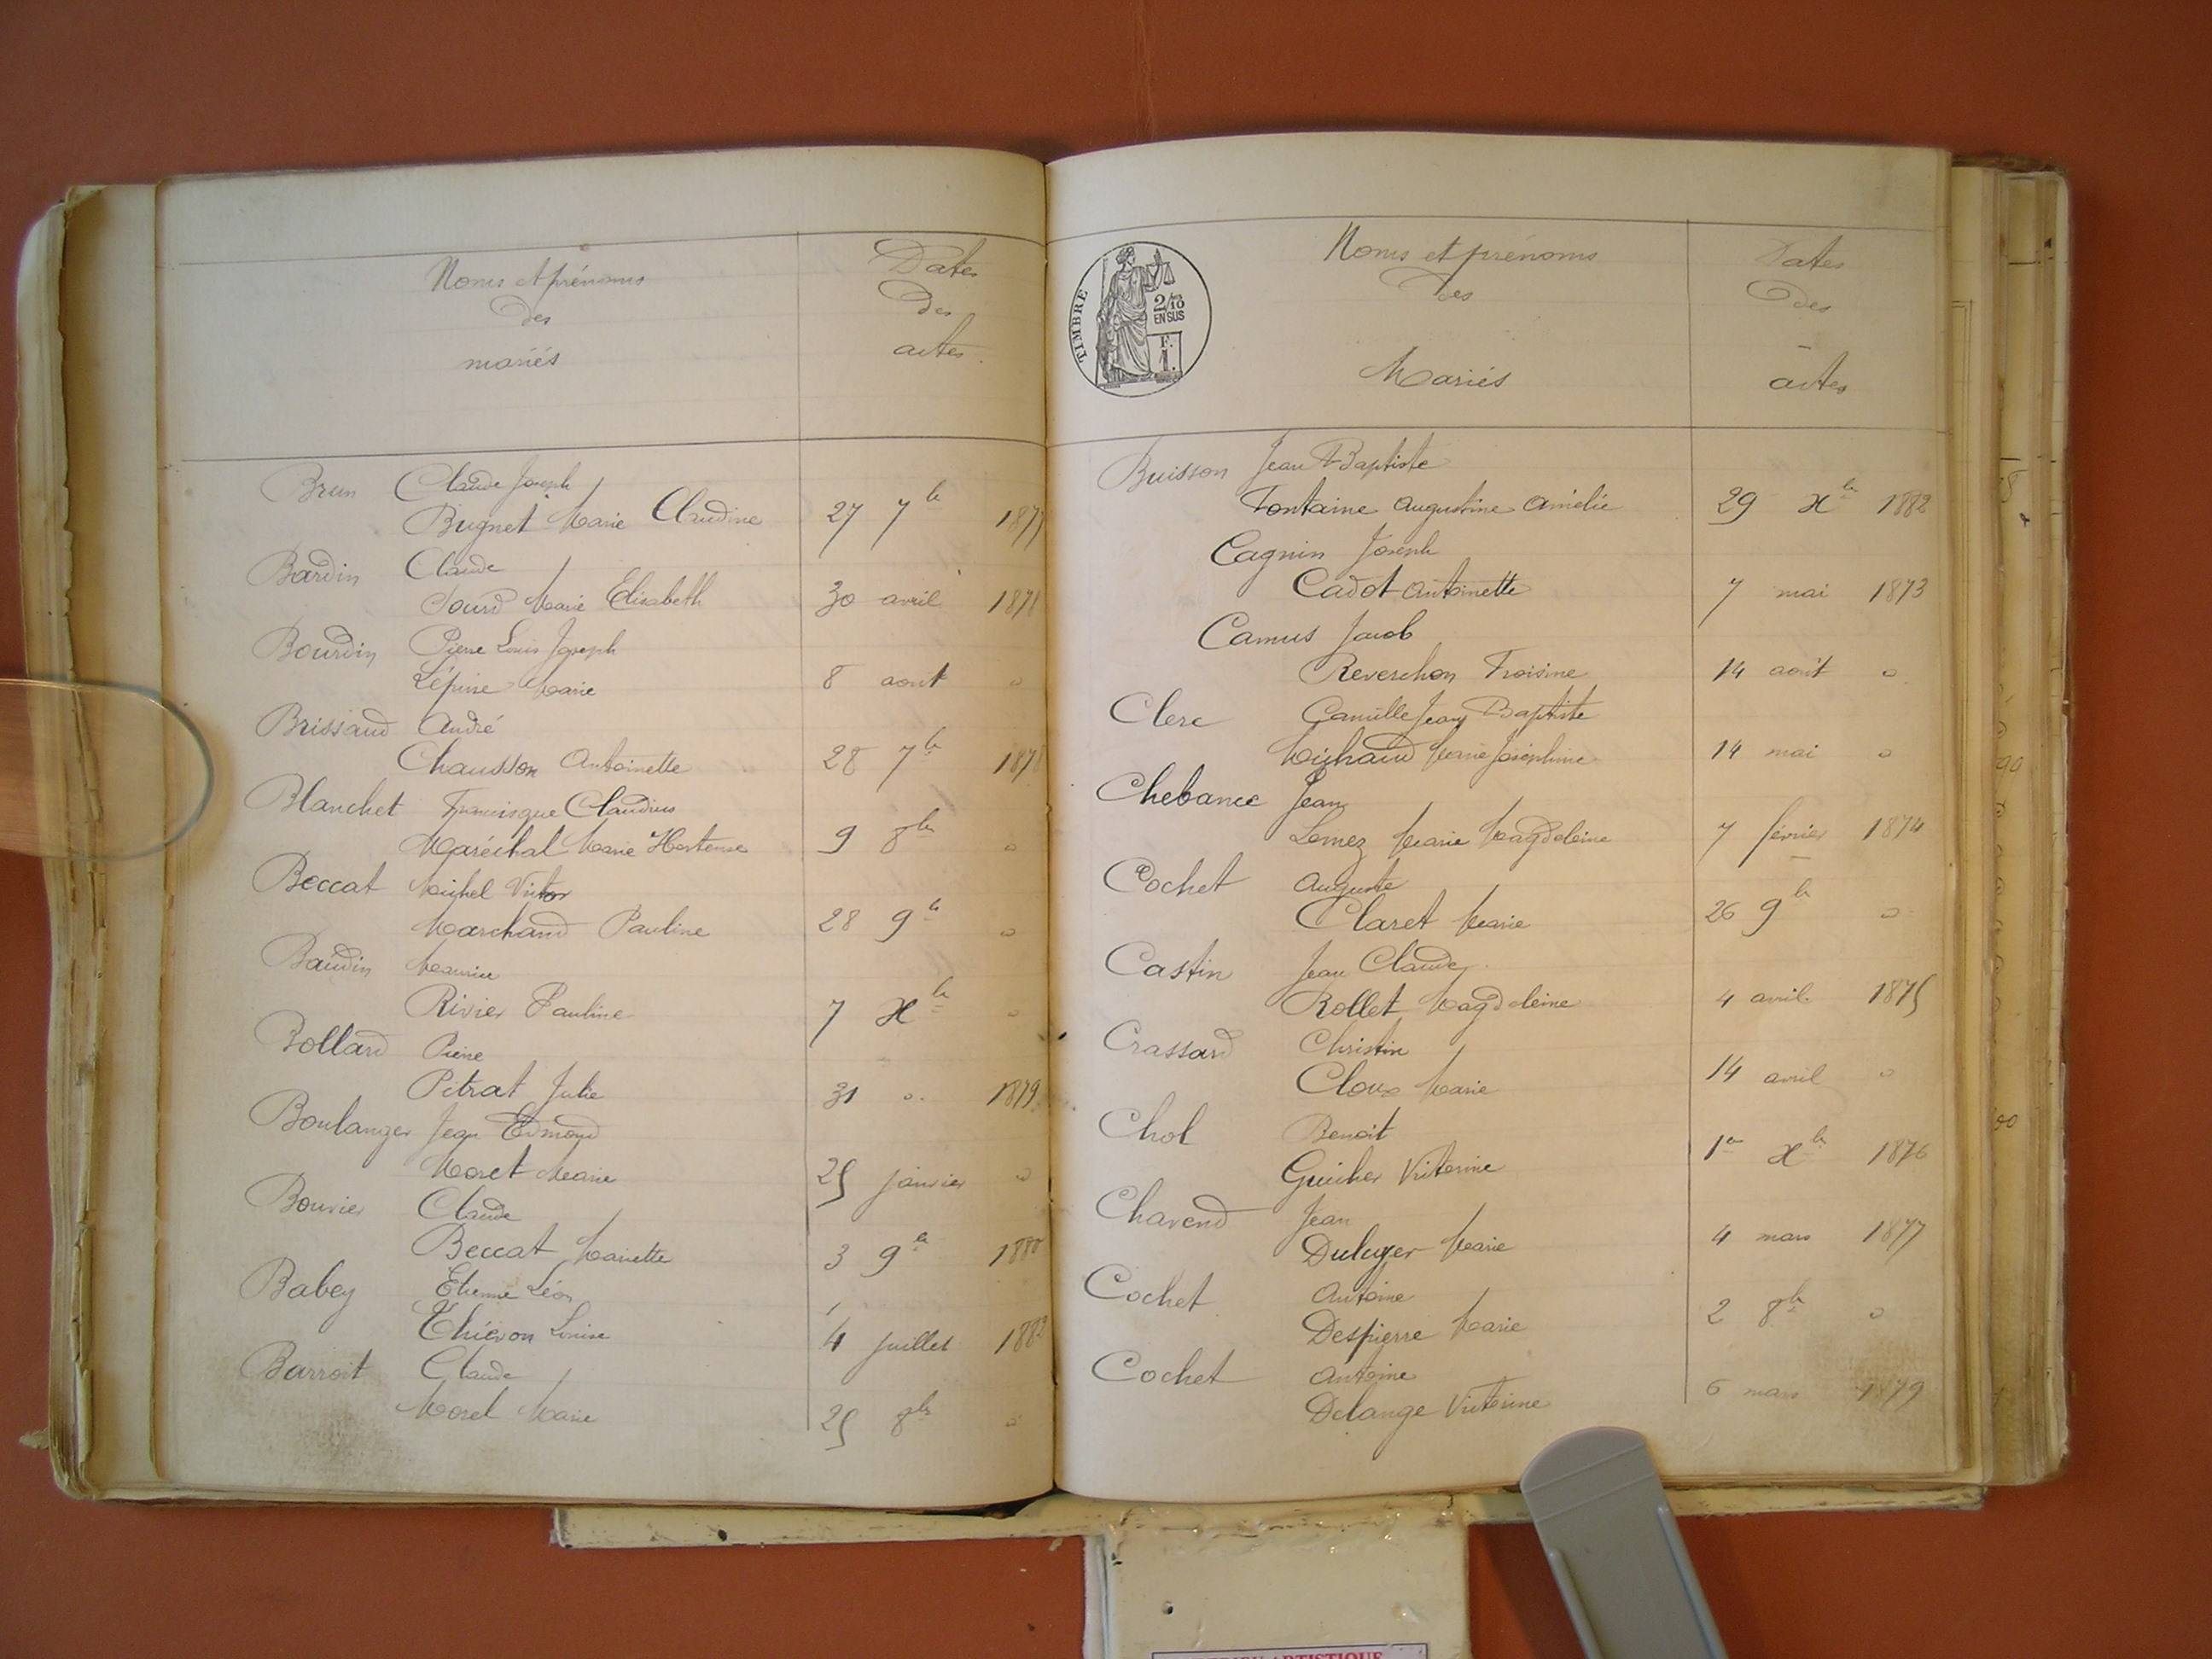 Noms et prénoms
des
mariés
Dates
des
actes.
Brun Claude Joseph
Bugnet Marie Claudine 27 7bre
Bardin Claude
Sourd Marie Elisabeth 30 avril 1878
Bourdin Pierre Louis Joseph
Lépine Marie 8 août "
Brissaud André
Chausson Antoinette 28 7bre 1878
Blanchet Francisque Claudius
Maréchal Marie Hortense 9 8bre "
Beccat Michel Victor
Marchand Pauline 28 9bre "
Baudin Maurice
Rivier Pauline 7 Xbre "
Bollard Pierre
Pitrat Julie 31 " 1879
Boulanger Jean Edmond
Moret Marie 25 janvier "
Bouvier Claude
Beccat Mariette 3 9bre 1880
Babey Etienne Léon
Thiévon Louise 4 juillet 1882
Barroit Claude
Morel Marie 25 8bre "
TIMBRE
2/10
EN SUS
F.
1.
Noms et prénoms
des
Mariés
Dates
des
actes
Buisson Jean Baptiste
Fontaine Augustine Amélie 29 Xbre 1882
Cagnin Joseph
Cadot Antoinette 7 mai 1873
Camus Jacob
Reverchon Froisine 14 août "
Clerc Camille Jean Baptiste
Michaud Marie Joséphine 14 mai "
Chebance Jean
Lomez Marie Magdeleine 7 février 1874
Cochet Auguste
Claret Marie 26 9bre "
Castin Jean Claude
Rollet Magdeleine 4 avril 1875
Crassard Christin
Cloux Marie 14 avril "
Chol Benoit
Guicher Victorine 1er Xbre 1876
Chavend Jean
Duluyer Marie 4 mars 1877
Cochet Antoine
Despierre Marie 2 8bre "
Cochet Antoine
Delange Victorine 6 mars 1879